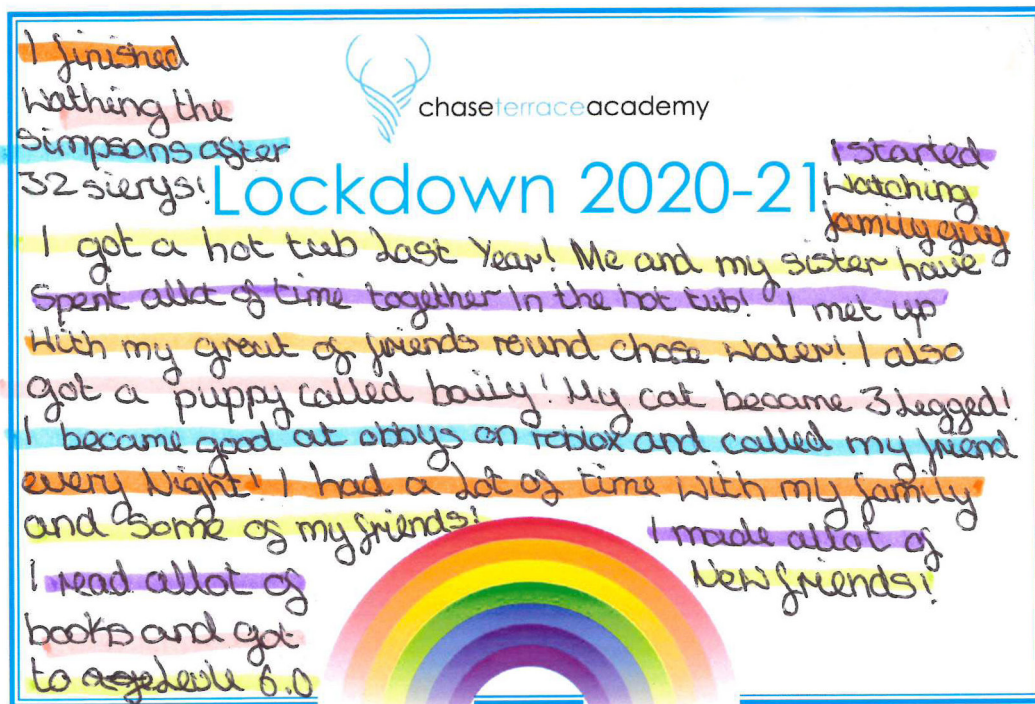 I finished
Wathing the
simpsons after
32 sierys!
chaseterraceacademy
Lockdown 2020-21
I started
Watching
family guy
I got a hot tub last Year! Me and my sister have
spent allot of time together in the hot tub! I met up
With my grout of friends round chase water! I also
got a puppy called baily! My cat became 3 legged!
I became good at obbys on roblox and called my friend
every Night! I had a lot of time with my family
and some of my friends!
I made allot of
New friends!
I read allot of
books and got
to levle 6.0